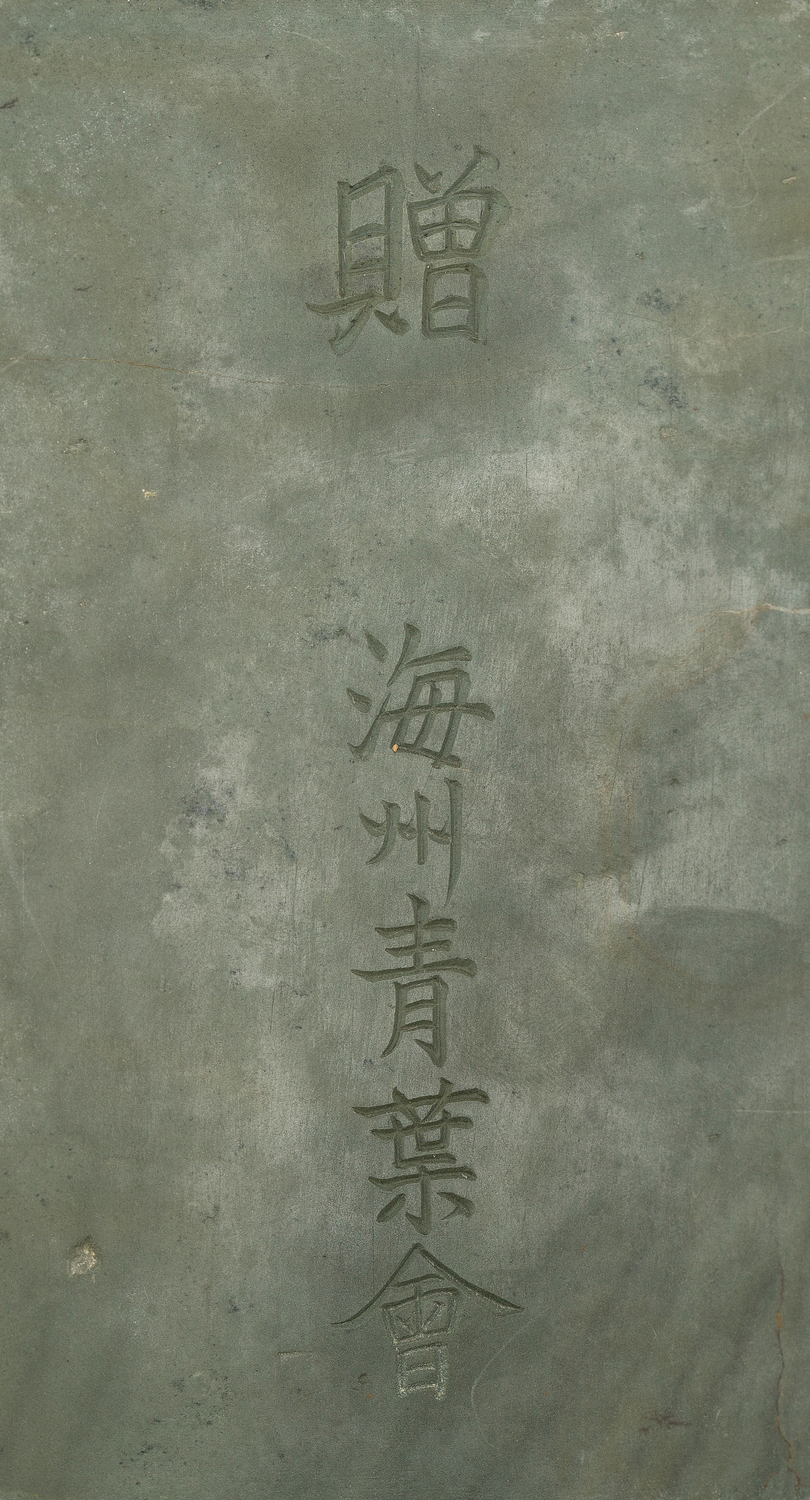 贈 海州青葉會